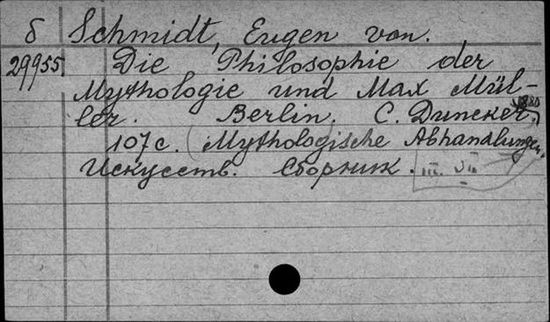 б Schmidt, Eugen von.
29955. Die Philosophie der
Mythologie und Max Mül-
ler. Berlin. C. Duncker, 1880
107 с. (Mythologische Abhandlungen.
Искусств. Сборник. III. VII